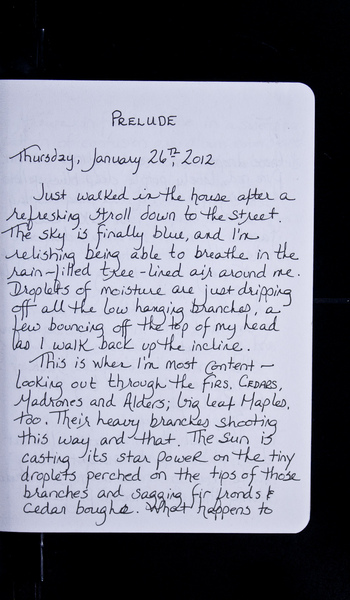 PRELUDE
Thursday, January 26TH, 2012
Just walked in the house after a
refreshing stroll down to the street.
The sky is finally blue, and I'm
relishing being able to breathe in the
rain-filled tree-lined air around me.
Droplets of moisture are just dripping
off all the low hanging branches, a
few bouncing off the top of my head
as I walk back up the incline.
This is when I'm most content -
looking out through the FIRS, CEDARS,
Madrones and Alders; big leaf Maples,
too. Their heavy branches shooting
this way and that. The Sun is
casting its star power on the tiny
droplets perched on the tips of those
branches and sagging fir fronds &
Cedar boughs. What happens to